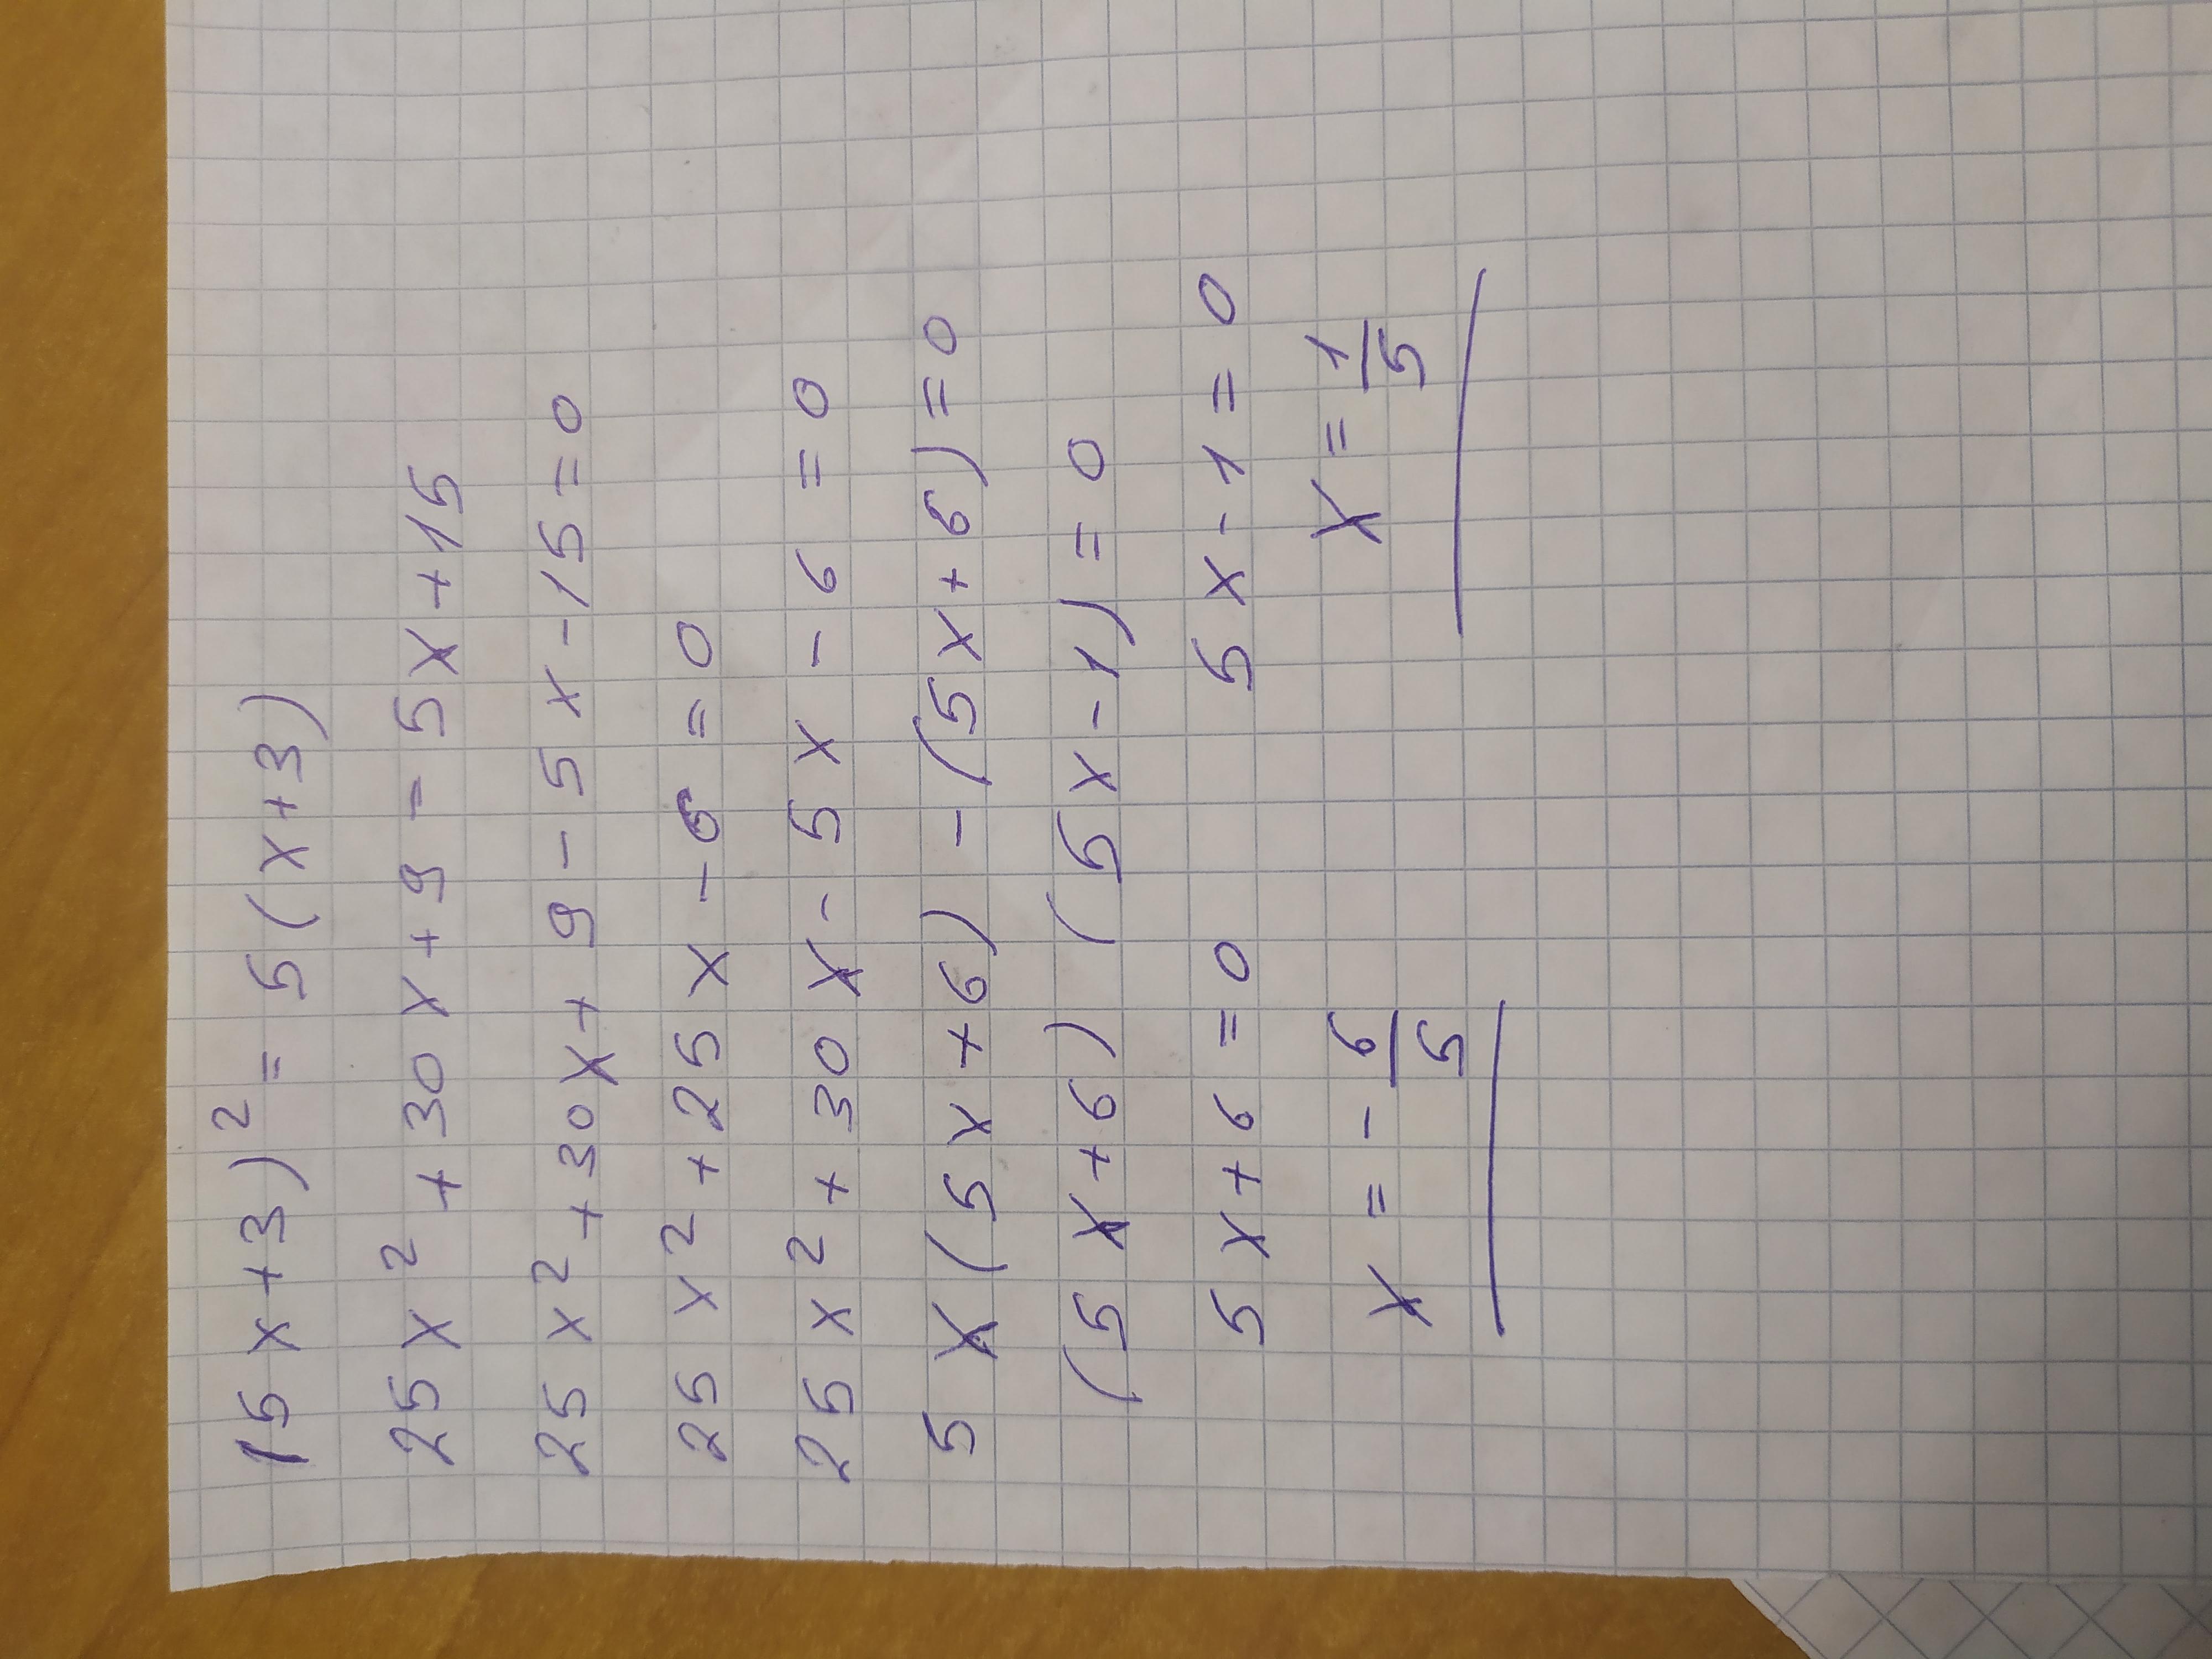 (5x+3)² = 5(x+3)
25x² + 30x + 9 = 5x + 15
25x² + 30x + 9 - 5x - 15 = 0
25x² + 25x - 6 = 0
25x² + 30x - 5x - 6 = 0
5x(5x+6) - (5x+6) = 0
(5x+6) (5x-1) = 0
5x+6 = 0 5x-1 = 0
x = -6/5 x = 1/5